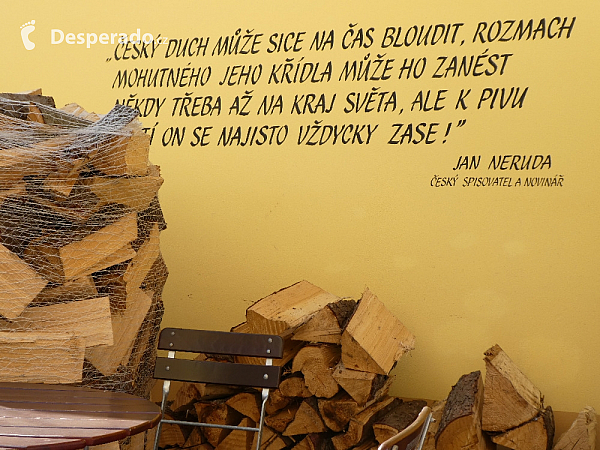 Desperado.cz
„ČESKÝ DUCH MŮŽE SICE NA ČAS BLOUDIT, ROZMACH
MOHUTNÉHO JEHO KŘÍDLA MŮŽE HO ZANÉST
NĚKDY TŘEBA AŽ NA KRAJ SVĚTA, ALE K PIVU
ON SE NAJISTO VŽDYCKY ZASE!"
JAN NERUDA
ČESKÝ SPISOVATEL A NOVINÁŘ